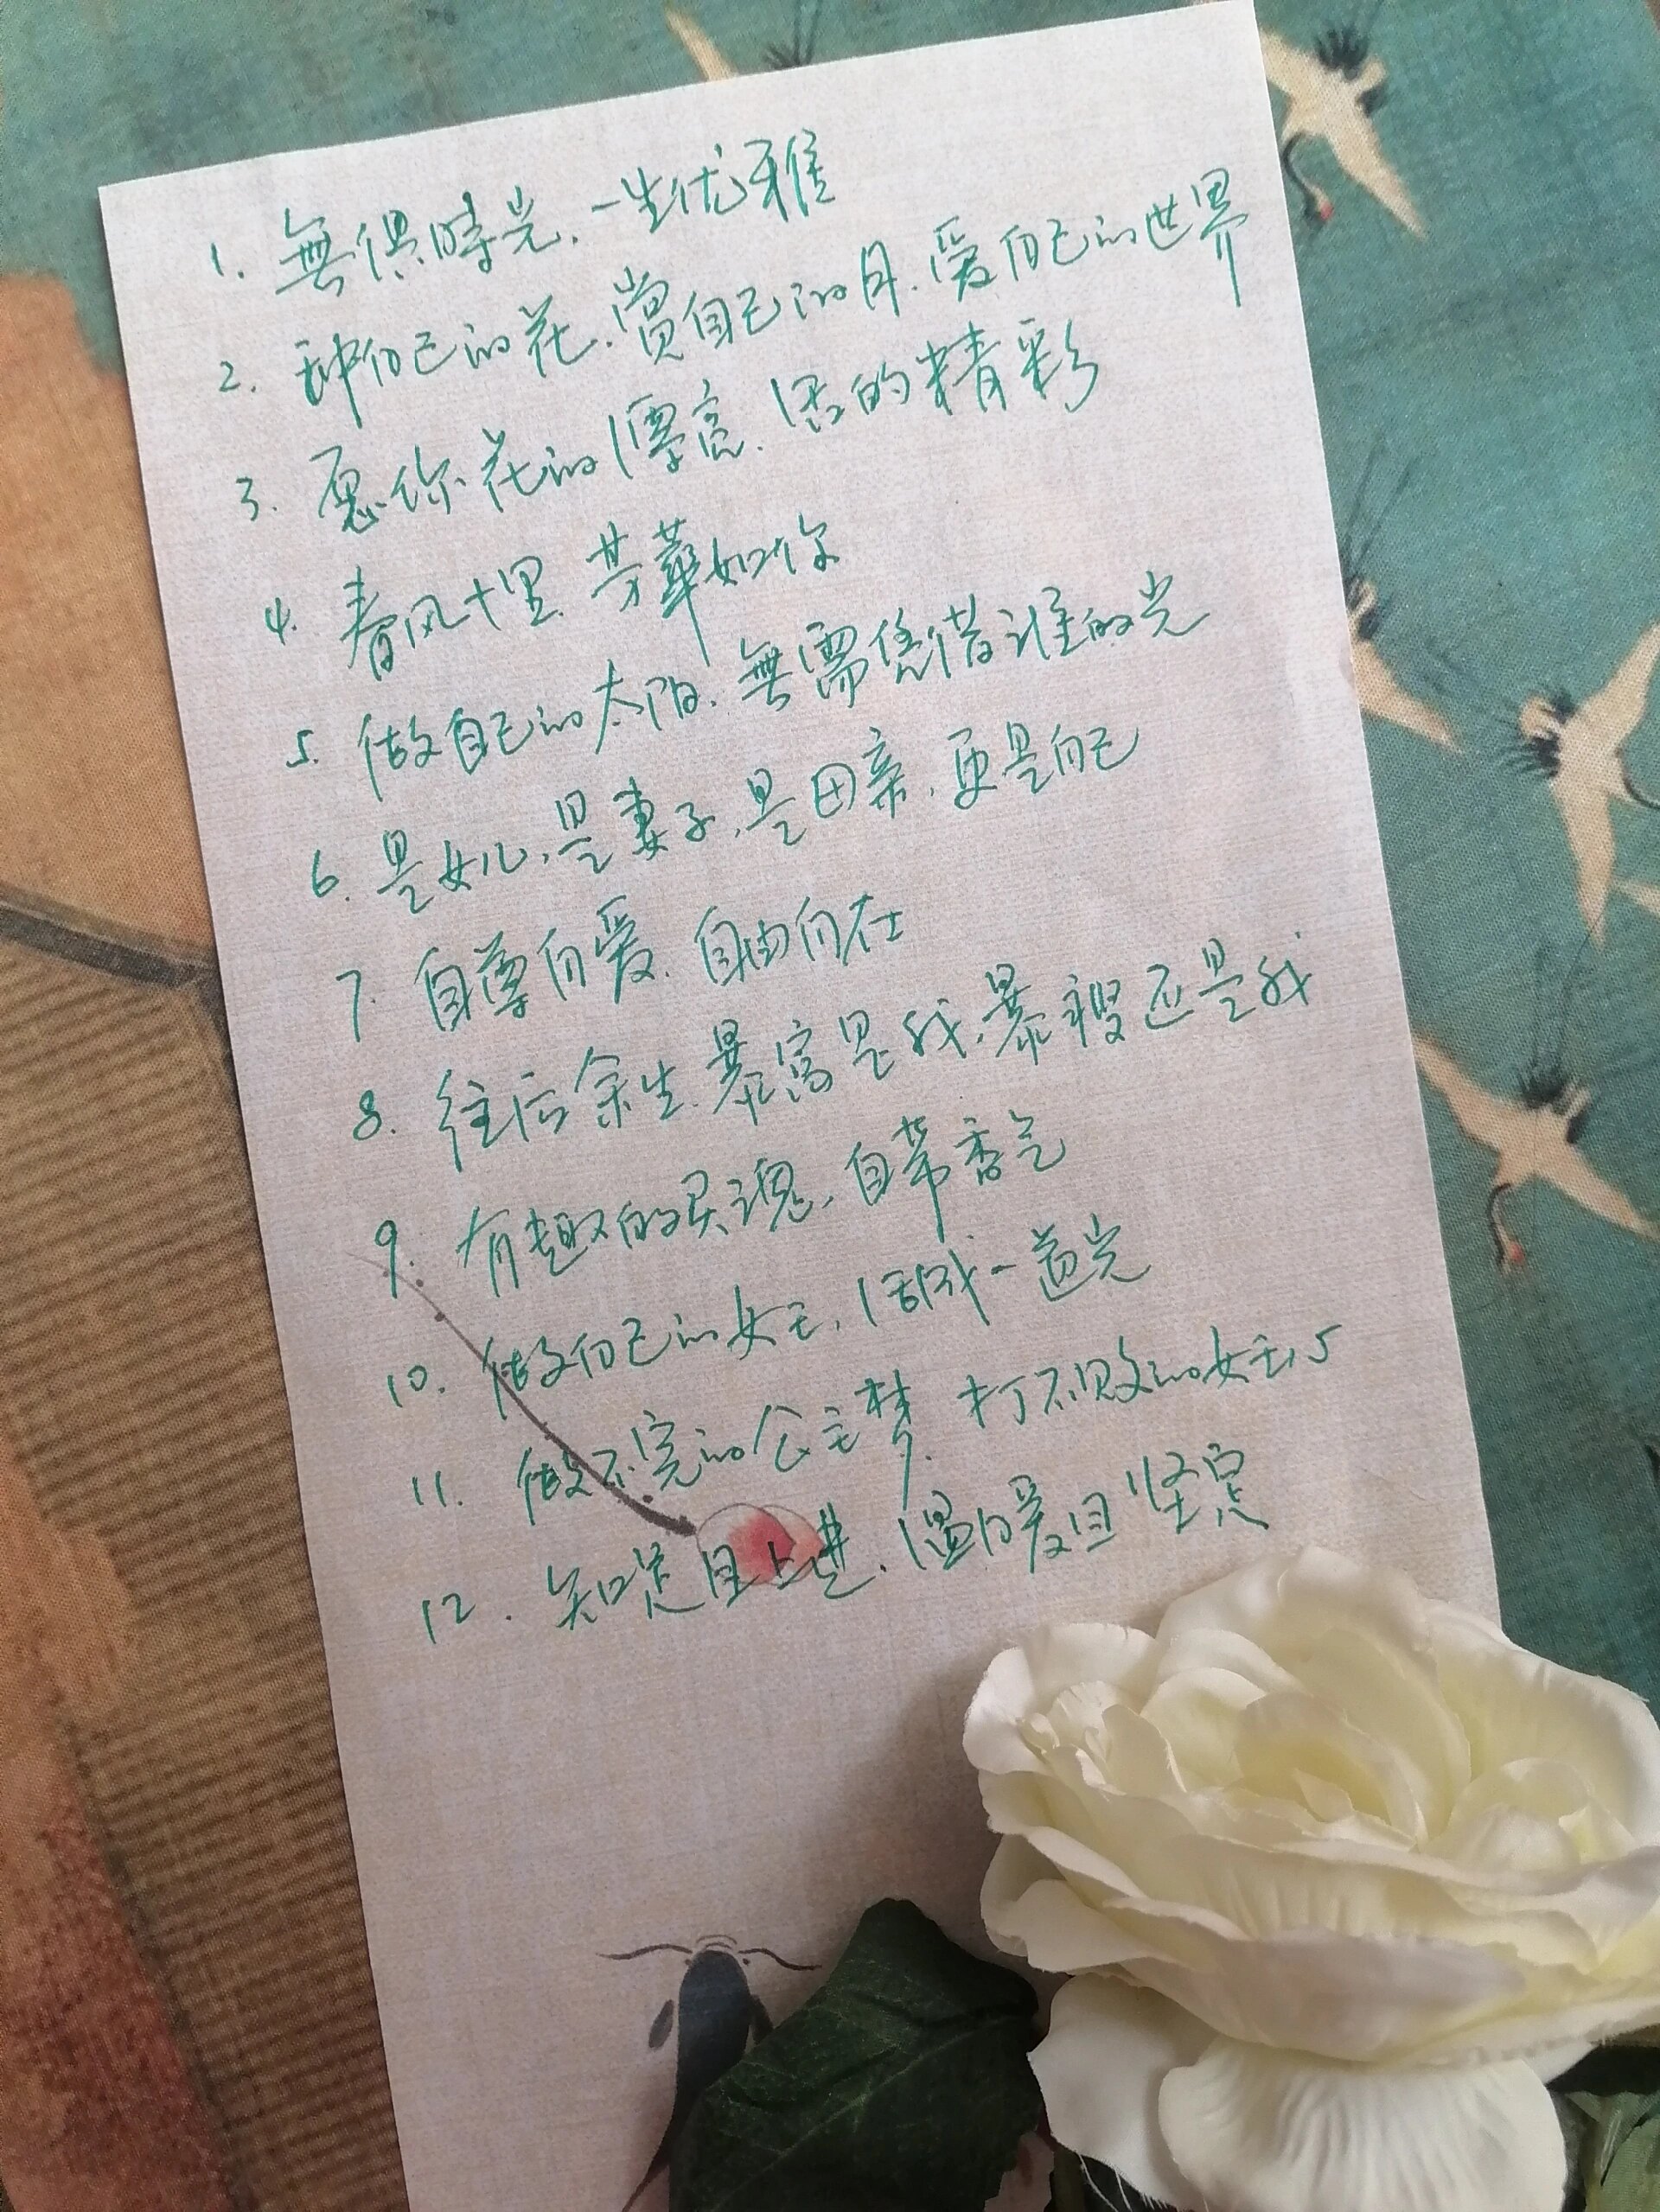 1. 無惧時光.一生优雅
2. 种自己的花.赏自己的月.爱自己的世界
3. 愿你花的漂亮.活的精彩
4. 春风十里.芳華如你
5. 做自己的太阳.無需凭借谁的光
6. 是女儿,是妻子,是母亲.更是自己
7. 自尊自爱.自由自在
8. 往后余生.暴富是我,暴瘦还是我
9. 有趣的灵魂,自带香气
10. 做自己的女王,活成一道光
11. 做不完的公主梦.打不败的女王心
12. 知足且上进.温暖且坚定